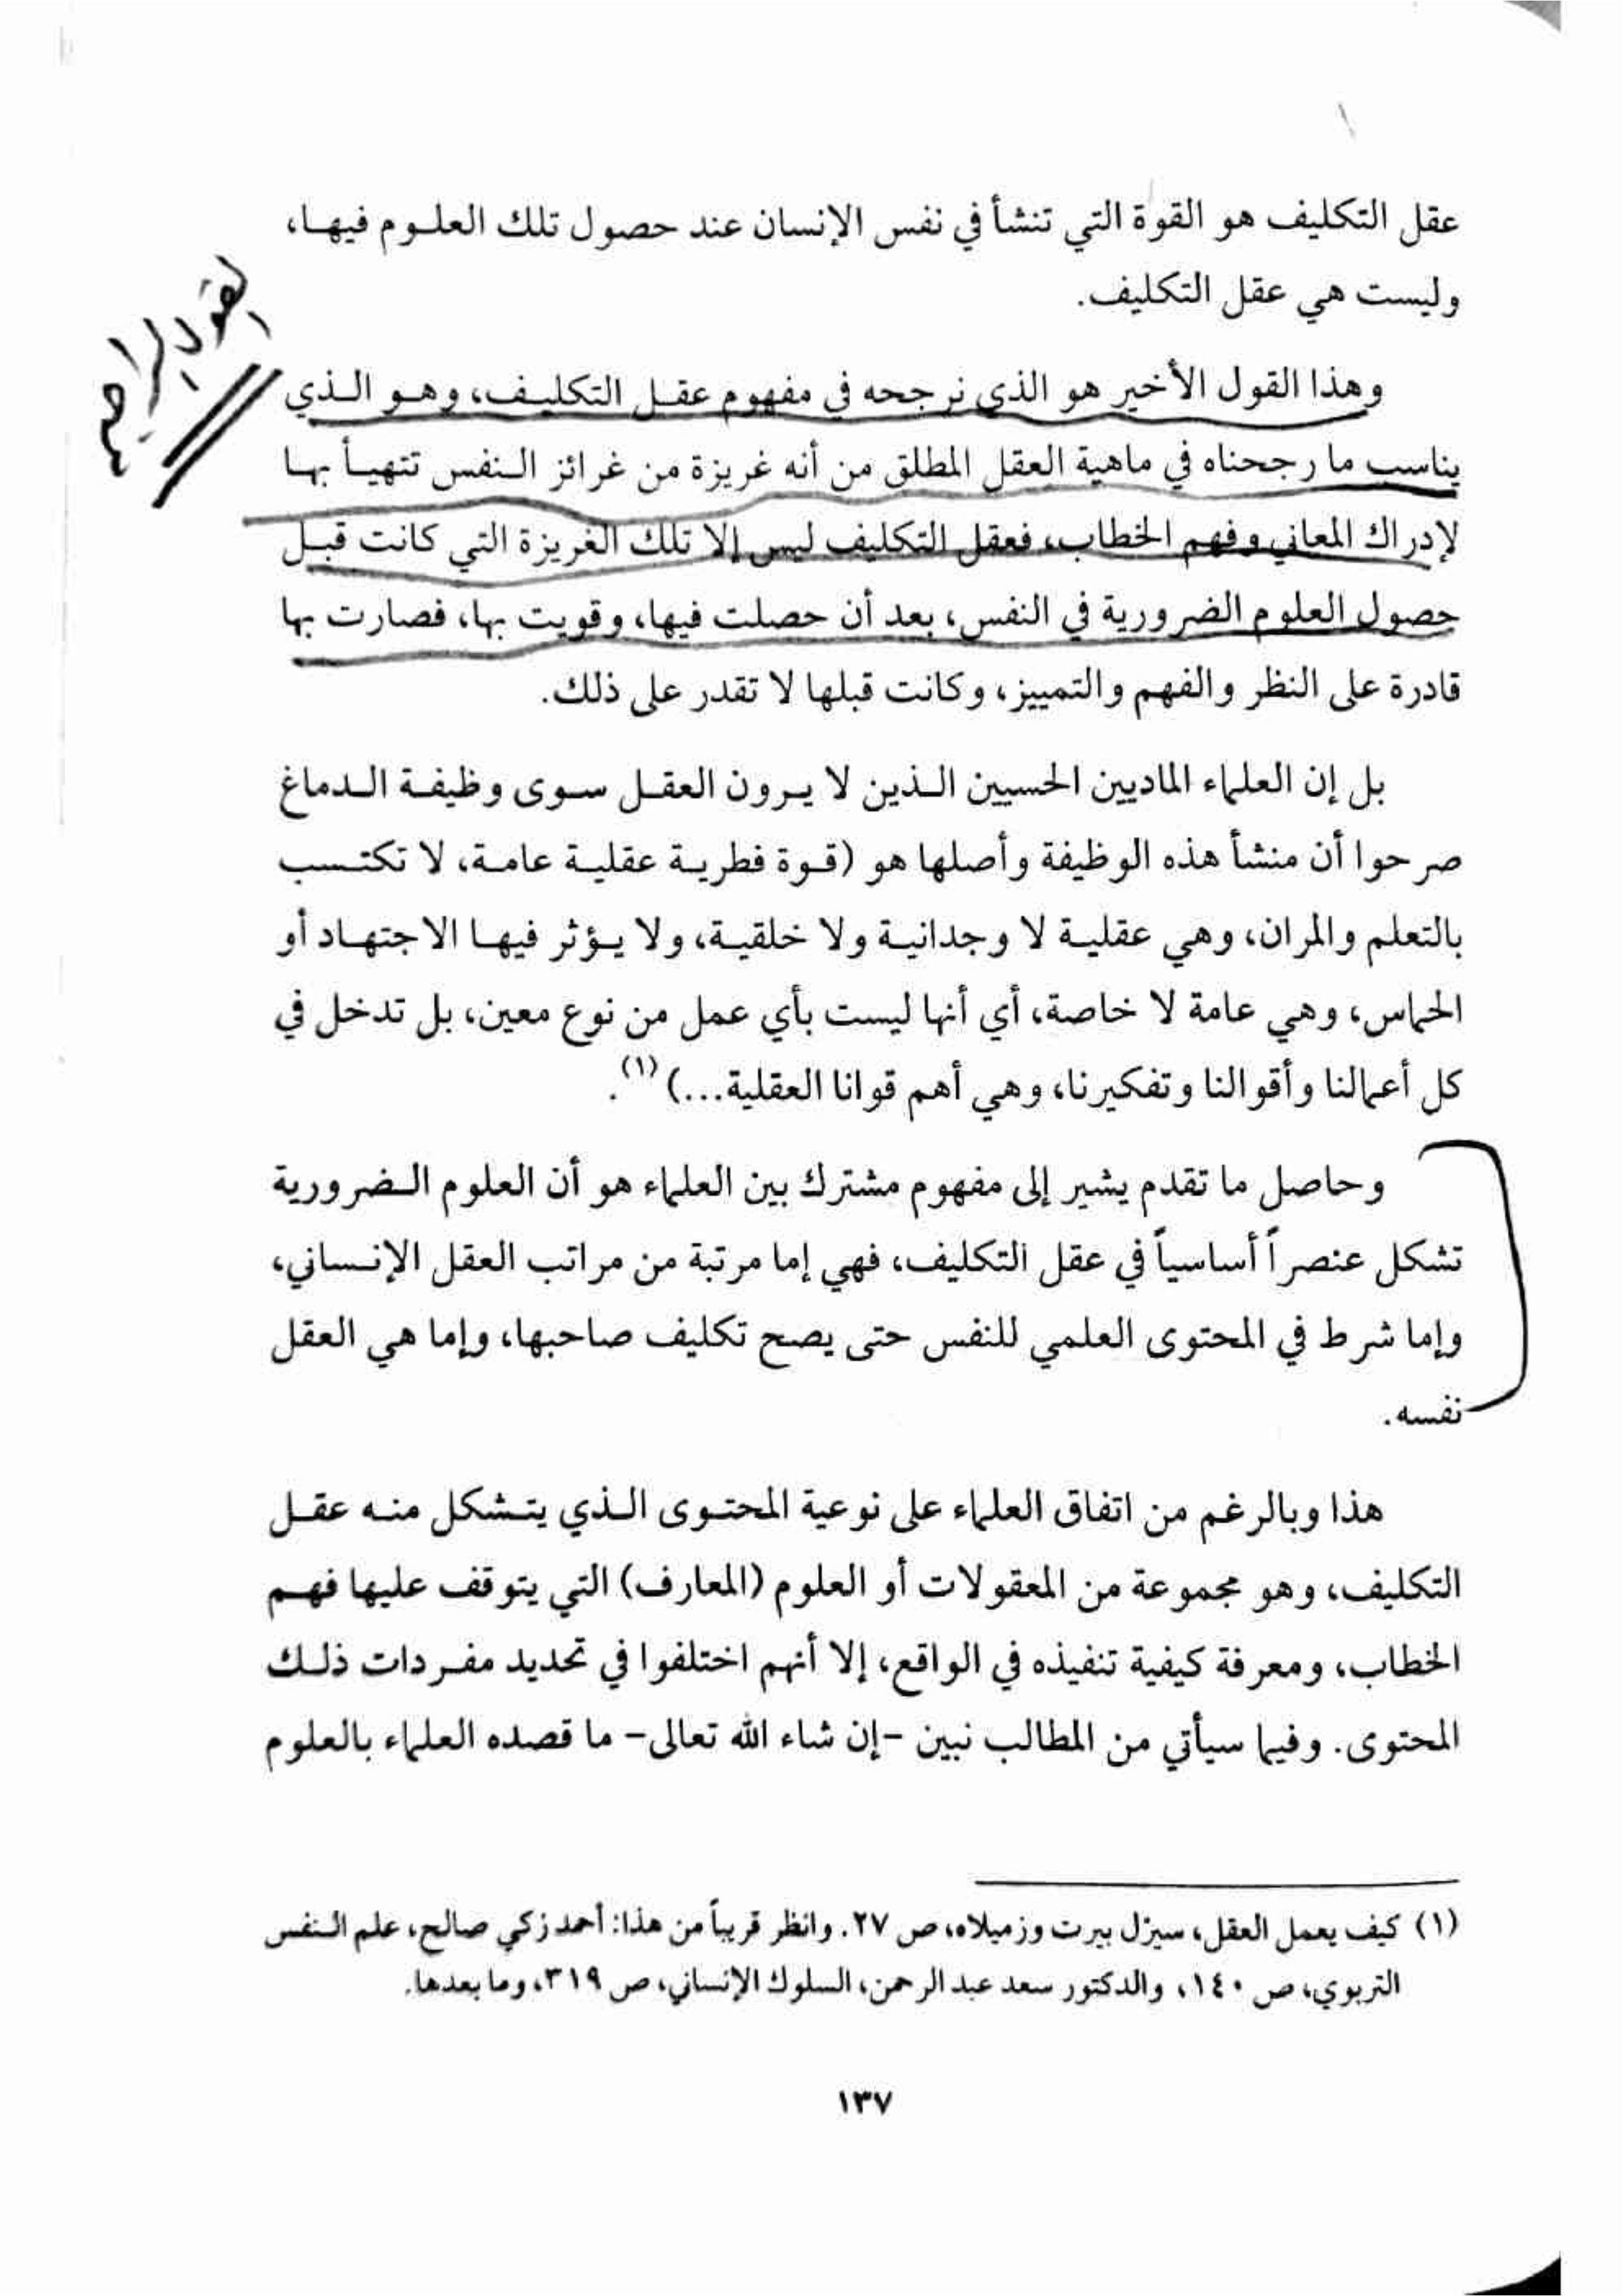 عقل التكليف هو القوة التي تنشأ في نفس الإنسان عند حصول تلك العلوم فيها،
وليست هي عقل التكليف.
القول الراجح
وهذا القول الأخير هو الذي نرجحه في مفهوم عقل التكليف، وهو الذي
يناسب ما رجحناه في ماهية العقل المطلق من أنه غريزة من غرائز النفس تتهيأ بها
لإدراك المعاني وفهم الخطاب، فعقل التكليف ليس إلا تلك الغريزة التي كانت قبل
حصول العلوم الضرورية في النفس، بعد أن حصلت فيها، وقويت بها، فصارت بها
قادرة على النظر والفهم والتمييز، وكانت قبلها لا تقدر على ذلك.
بل إن العلماء الماديين الحسيين الذين لا يرون العقل سوى وظيفة الدماغ
صرحوا أن منشأ هذه الوظيفة وأصلها هو (قوة فطرية عقلية عامة، لا تكتسب
بالتعلم والمران، وهي عقلية لا وجدانية ولا خلقية، ولا يؤثر فيها الاجتهاد أو
الحماس، وهي عامة لا خاصة، أي أنها ليست بأي عمل من نوع معين، بل تدخل في
كل أعمالنا وأقوالنا وتفكيرنا، وهي أهم قوانا العقلية...)(١).
وحاصل ما تقدم يشير إلى مفهوم مشترك بين العلماء هو أن العلوم الضرورية
تشكل عنصراً أساسياً في عقل التكليف، فهي إما مرتبة من مراتب العقل الإنساني،
وإما شرط في المحتوى العلمي للنفس حتى يصح تكليف صاحبها، وإما هي العقل
نفسه.
هذا وبالرغم من اتفاق العلماء على نوعية المحتوى الذي يتشكل منه عقل
التكليف، وهو مجموعة من المعقولات أو العلوم (المعارف) التي يتوقف عليها فهم
الخطاب، ومعرفة كيفية تنفيذه في الواقع، إلا أنهم اختلفوا في تحديد مفردات ذلك
المحتوى. وفيما سيأتي من المطالب نبين -إن شاء الله تعالى- ما قصده العلماء بالعلوم
(١) كيف يعمل العقل، سيزل بيرت وزميلاه، ص ٢٧. وانظر قريباً من هذا: أحمد زكي صالح، علم النفس
التربوي، ص ١٤٠، والدكتور سعد عبد الرحمن، السلوك الإنساني، ص ٣١٩، وما بعدها.
١٣٧